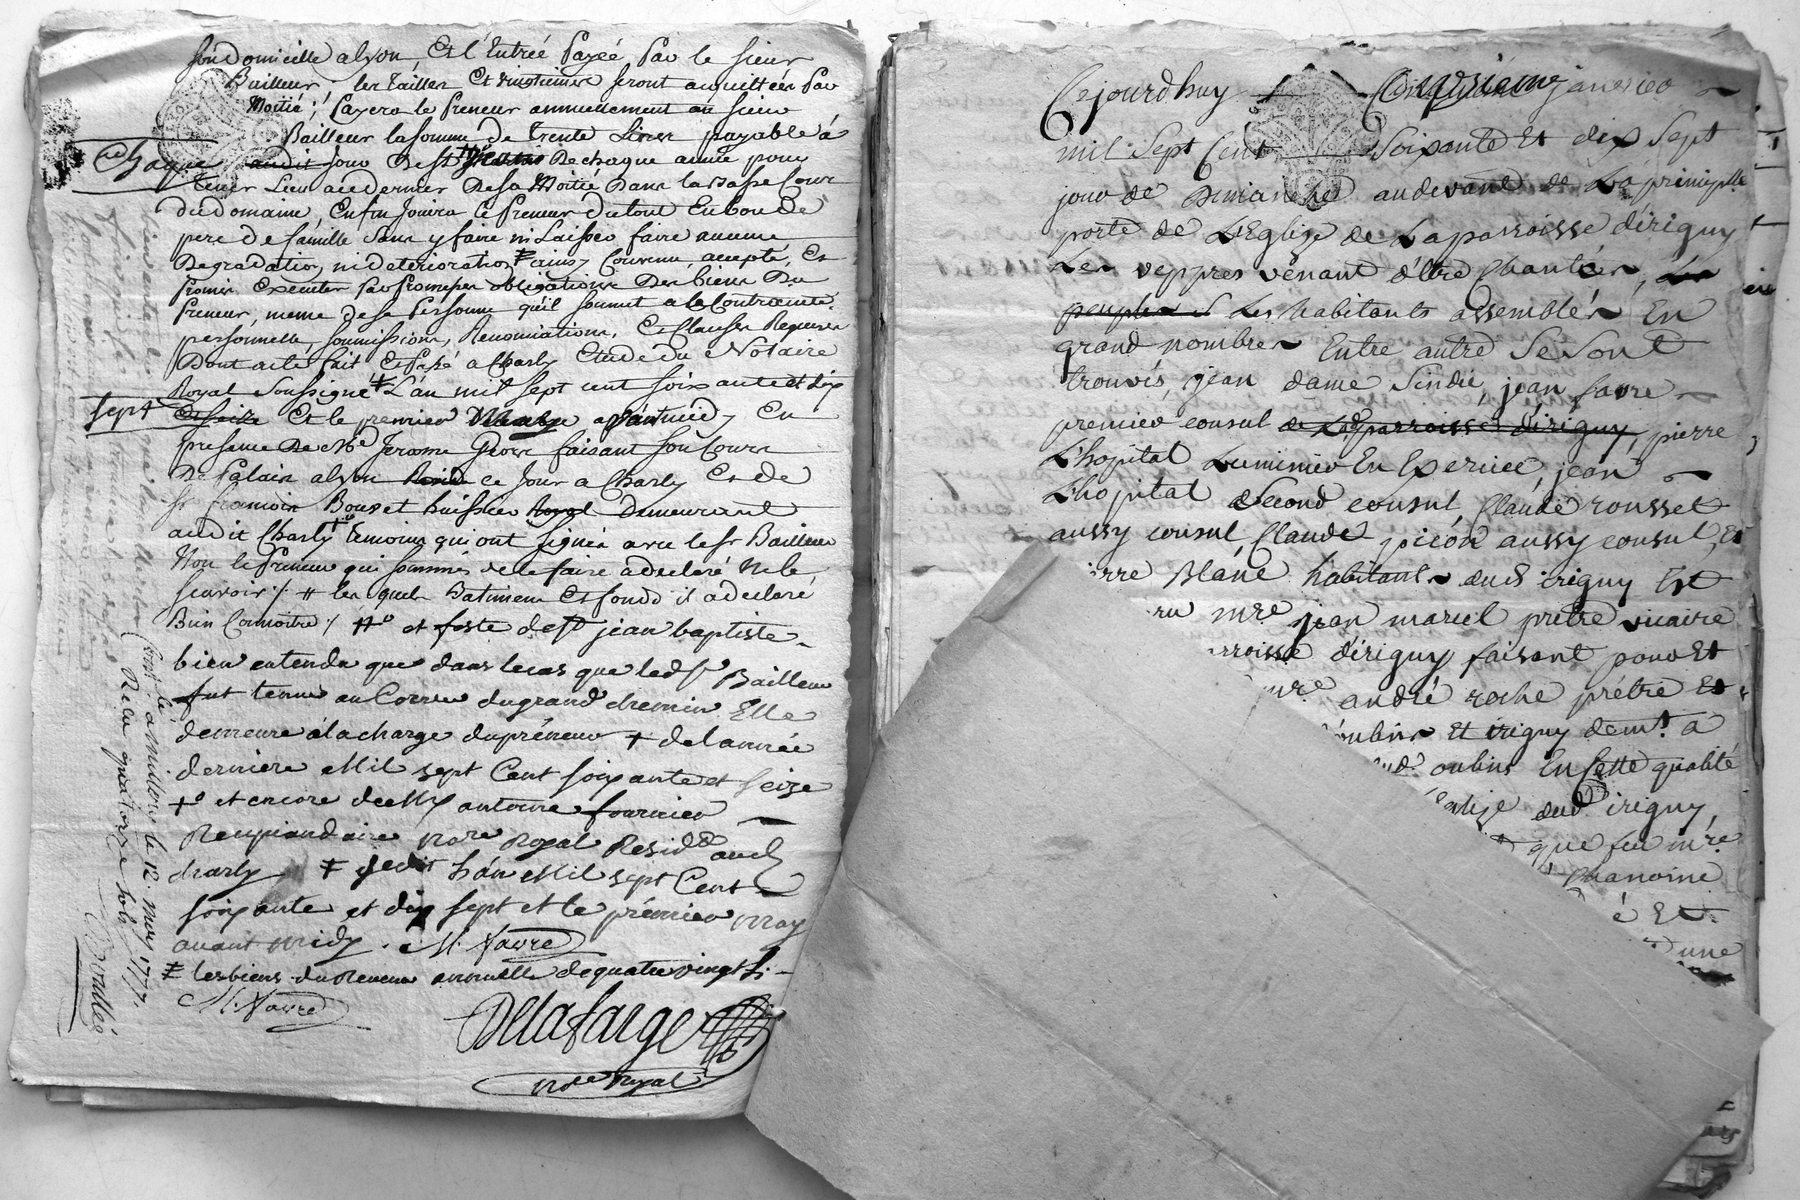 son domicille a lyon, Et l'Entreé payeé par le sieur
Bailleur, les tailles Et vingtiemes seront acquitteés par
Moitié; payera le preneur annuellement au sieur
Bailleur la somme de trente Livres payable à
chaque audit jour de st jean de chaque année pour
tenir Lieu audernier de sa Moitié dans la Basse Cour
du domaine, Enfin Jouira le preneur du tout En bon de
pere de famille sans y faire ni Laisser faire aucune
degradation, ni deterioration ainsy Convenu, accepté, Et
promis Executer par obligations des biens du
preneur, meme de sa personne qu'il soumet a la Contrainte
personnelle, soumissions, Renonciations, Et Clauses Requises
Dont acte fait Et passé a Charly Etude du Notaire
Royal soussigné L'an mil sept cent soixante et dix
sept et seize Et le premier avant midy En
presence de Me Jerome faisant son Cours
De Palais a lyon ce Jour a Charly Et de
sr francois Bouvet huissier royal demeurant
audit Charly temoins qui ont signés avec le sr Bailleur
Non le preneur qui sommés de le faire a declaré ne le
scavoir / # les quels batimens Et fonds il a declaré
Bien Connoitre / #o et feste de st jean baptiste
bien entendu que dans le cas que led sr Bailleur
fut tenu au Corvée du grand chemin Elle
demeure a la charge du préneur + de l'année
derniere Mil sept Cent soixante et seize
+o et encore de Me antoine fournier
Recipiandaire nore Royal Residt aud
charly ‡ l'an Mil sept Cent
soixante et dix sept et le prémier may
avant midy. M. favre
‡ les biens du Revenu annuelle de quatre vingt
M. favre
Delafarge
nore Royal
Contrôlé a millery le 12. may 1777.
Recu quatorze sols
Brullée
Cejourdhuy Cinquième janvier
mil Sept Cent Soixante Et dix Sept
jour de dimanche audevant de La principalle
porte de L'Eglize de La parroisse d'irigny
Les veppres venant d'être Chantées, Les
peuples Les habitants assemblés En
grand nombres Entre autre Se Sont
trouvés, jean dame Sindic, jean favre
premier consul de La parroisse d'irigny, pierre
L'hopital Luminier En Exercice, jean
L'hopital Second consul Claude rousset
aussy consul Claude picon aussy consul, Et
ierre Blanc habitants dud irigny Est
ru mre jean marcel prêtre vicaire
rroisse d'irigny faisant pour Et
mre andré roche prêtre Et
oulins Et irigny demt a
oulins En Cette qualité
Eglize dud irigny
que feu mre
Chanoine
é Et
d'une